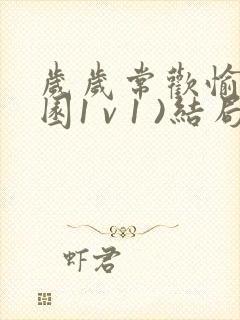 歲歲常歡愉
園1v1)結局
虾君